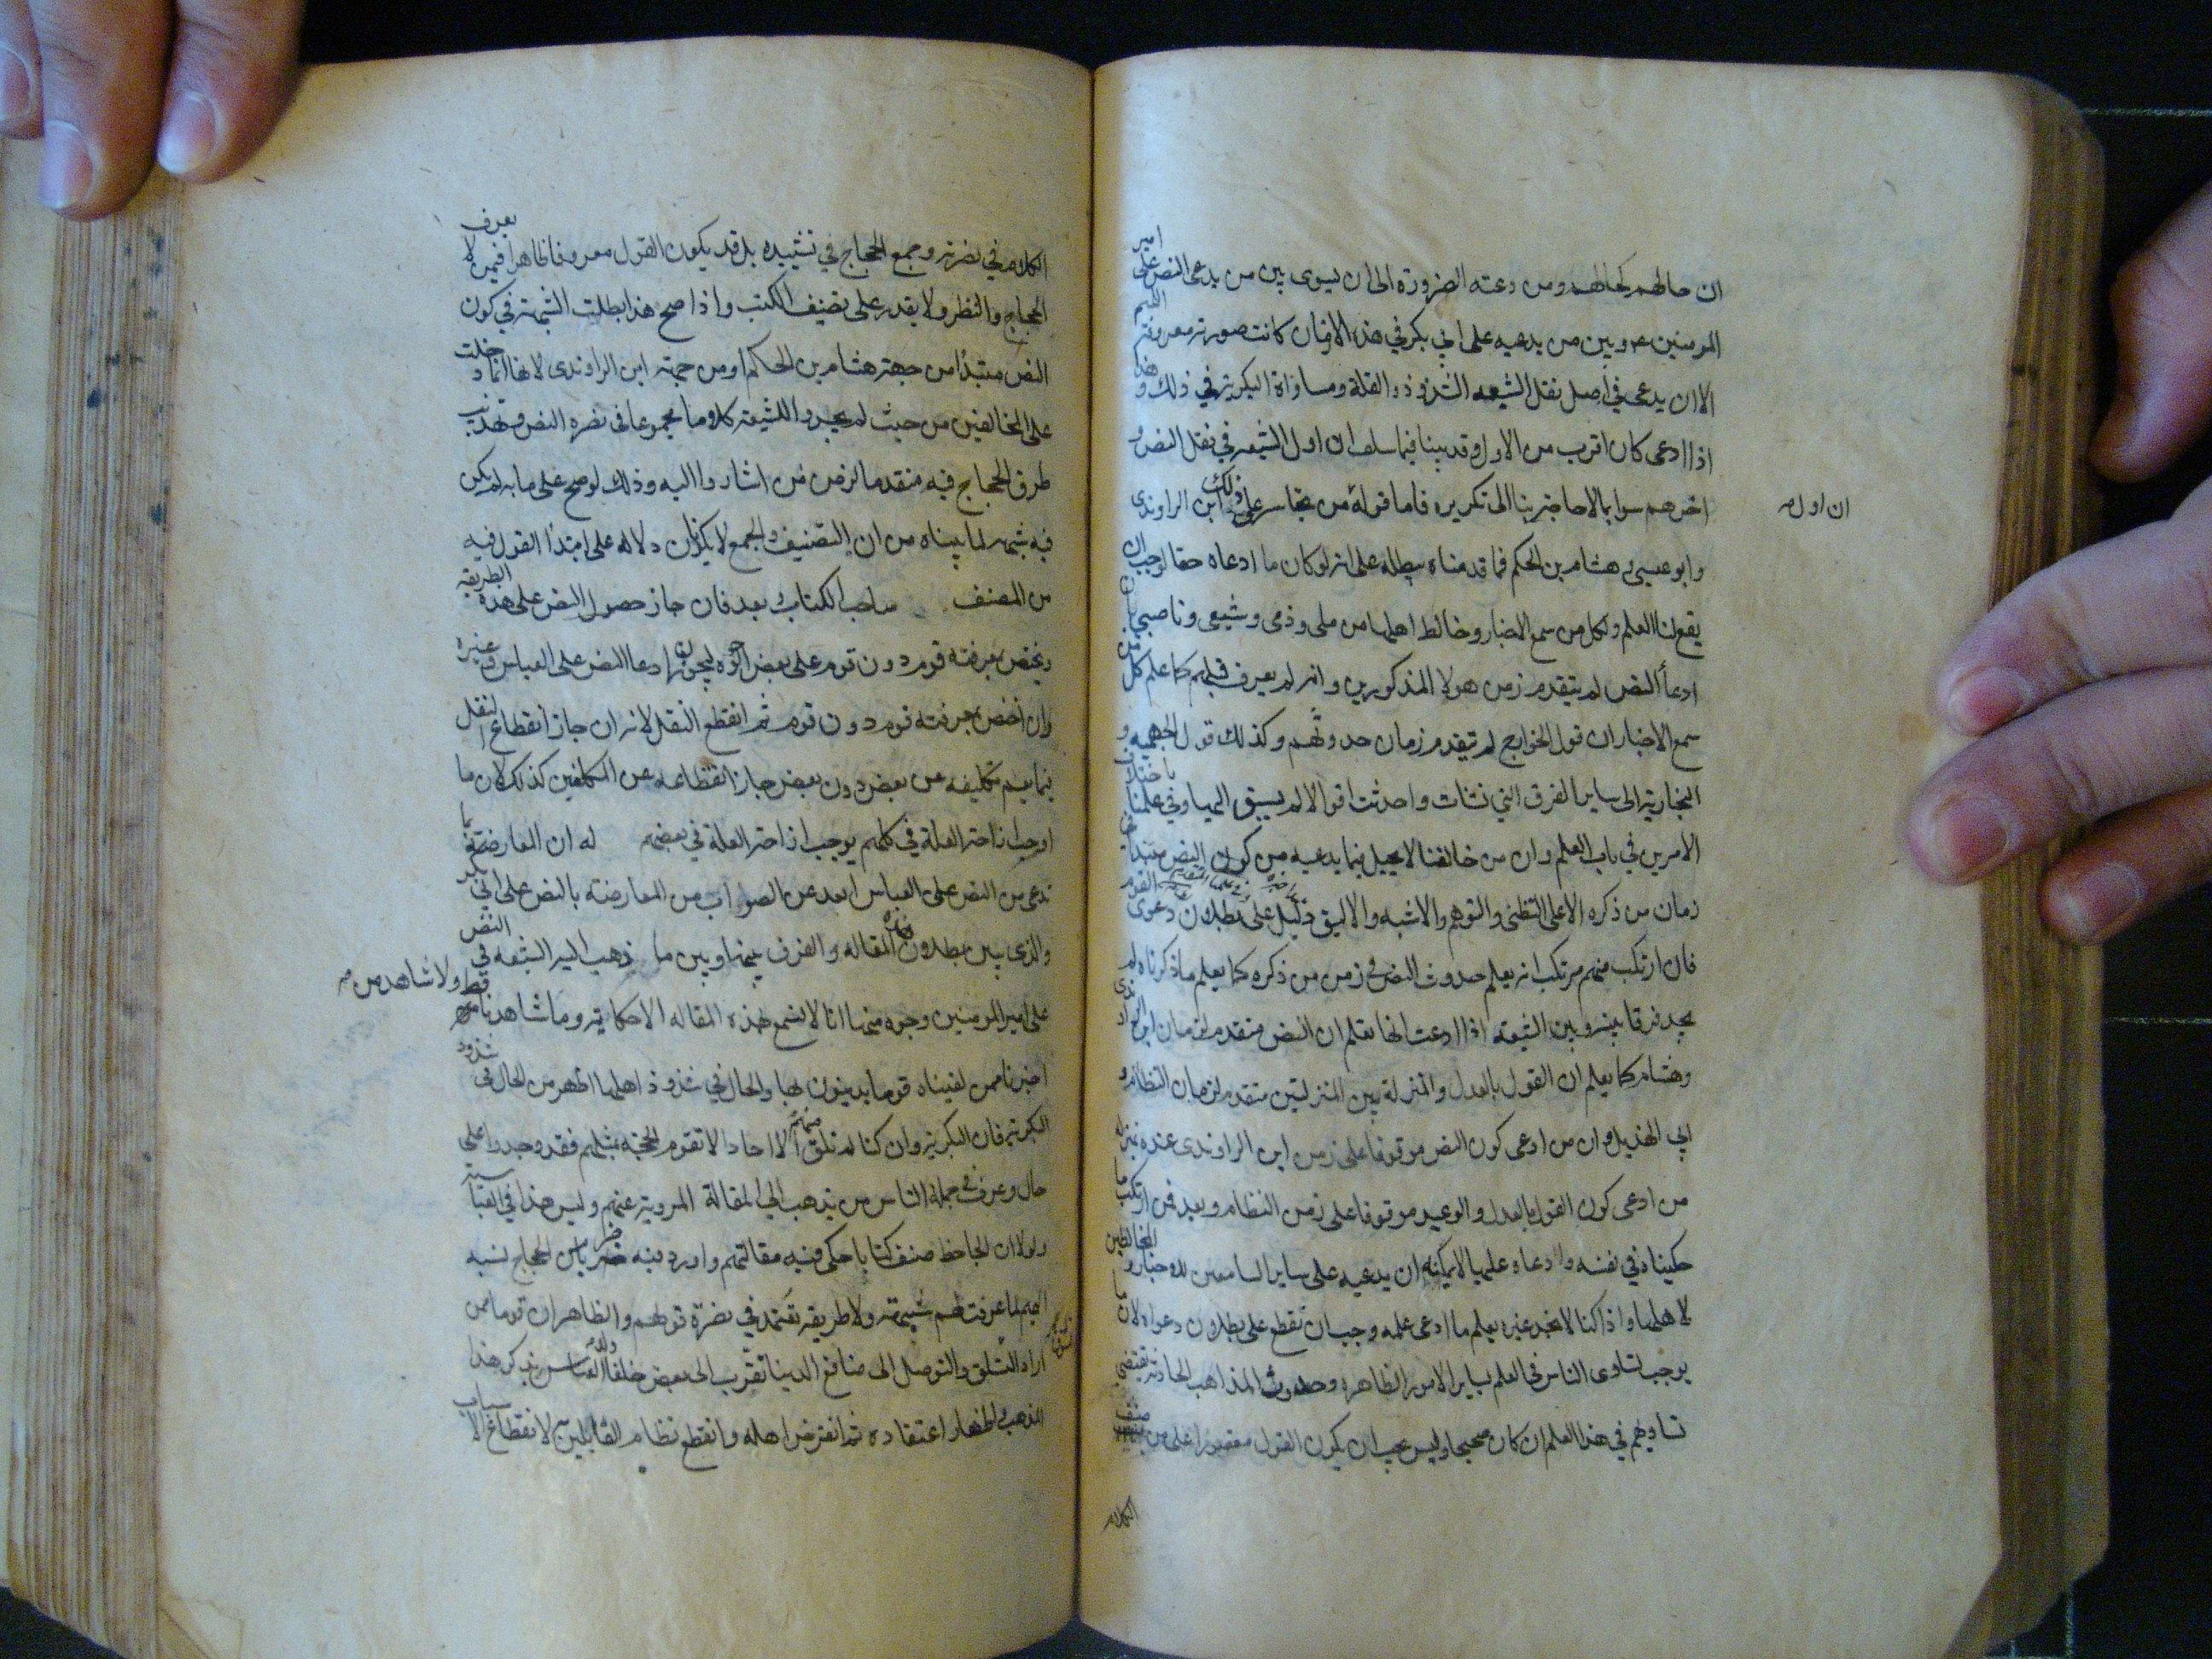 ان حالهم كحالهم ومن دعته الضرورة الى ان يسوى بين من يدعى النص على امير
المومنين ع وبين من يدعيه على ابي بكر في هذا الازمان كانت صورته معروفة اللهم
الا ان يدعى في اصل نقل الشيعه الشذوذ والقلة ومساواة البكرية في ذلك وهذا
اذا ادعى كان اقرب من الاول وقد بينا فيما سلف ان اول الشيعه في نقل النص و
ان اول
اخرهم سوا بما لا حاجة بنا الى تكريره فاما قوله من تجاسر على ذلك ابن الراوندى
وابو عيسى و هشام بن الحكم فما قدمناه يبطله على انه لو كان ما ادعاه حقا لوجب ان
يقع لنا العلم ولكل من سمع الاخبار وخالط اهلها من ملى وذمى وشيعى وناصبى بان
ادعا النص لم يتقدم زمن هولا المذكورين وانه لم يعرف قبلهم كما علم كل من
سمع الاخبار ان قول الخوارج لم يتقدم زمان حدوثهم وكذلك قول الجهميه و
النجارية الى ساير الفرق التي نشات واحدثت اقوالا لم يسبق اليها وفي علمنا باختلاف
الامرين في باب العلم وان من خالفنا لا يحيل فيما يدعيه من كون النص مبتدا في
زمان من ذكره الا على التظنى والتوهم والاشبه والاليق دليل على بطلان دعوى القوم
فان ارتكب منهم مرتكب انه يعلم حدوث النص في زمن من ذكره كما يعلم ما ذكرناه لم
يجد فرقا بينه وبين الشيعه اذا ادعت انها تعلم ان النص متقدم لزمان ابن الراوندى
وهشام كما يعلم ان القول بالعدل والمنزلة بين المنزلتين متقدم لزمان النظام و
ابي الهذيل وان من ادعى كون النص موقوفا على زمن ابن الراوندى عنده بمنزلة
من ادعى كون القول بالعدل والوعيد موقوفا على زمن النظام وبعد فمن ارتكب ما
حكيناه في نفسه وادعاه علميا لا يمكنه ان يدعيه على ساير السامعين للاخبار والمخالطين
لاهلها واذا كنا لا نجد غيره يعلم ما ادعى علمه وجب ان نقطع على بطلان دعواه لان ما
يوجب تساوى الناس في العلم بساير الامور الظاهره وحدوث المذاهب الحادثة يقتضى
تساويهم في هذا العلم ان كان صحيحا وليس يجب ان يكون القول مقصورا على من صنف
الكلام
الكلام في نصرته وجمع الحجاج في تشييده بل قد يكون القول معروفا ظاهرا فيمن لا يعرف
الحجاج والنظر ولا يقدر على تصنيف الكتب واذا صح هذا بطلت الشبهة في كون
النص مبتدأ من جهة هشام بن الحكم او من جهة ابن الراوندى لانها انما دخلت
على المخالفين من حيث لم يجدوا للشيعة كلاما مجموعا في نصره النص وتهذيب
طرق الحجاج فيه متقدما لزمن من اشاروا اليه وذلك لو صح على ما به لم يكن
فيه شبهة لما بيناه من ان التصنيف والجمع لا يكونان دلاله على ابتدا القول فيه
من المصنف صاحب الكتاب وبعد فان جاز حصول النص على هذه الطريقه
ويختص بمعرفته قوم دون قوم على بعض الوجوه ليجوزن ادعا النص على العباس وغيره
وان اختص بمعرفته قوم دون قوم ثم انقطع النقل لانه ان جاز انقطاع النقل
فيما يعم تكليفه عن بعض دون بعض جاز انقطاعه عن المكلفين كذلك لان ما
اوجب ازاحة العلة في كلهم يوجب ازاحة العلة في بعضهم له ان المعارضة بما
تدعى من النص على العباس ابعد من الصواب من المعارضة بالنص على ابي بكر
والذى يبين بطلان هذه المقاله والفرق بينها وبين ما ذهب اليه الشيعه في النص
على امير المومنين وجوه منها انا لا نسمع بهذه المقاله الا حكاية وما شاهدنا قط ولا شاهد من
اخبرنا ممن لقيناه قوما يدينون بها والحال في شذوذ اهلها اظهر من الحال في شذوذ
البكرية فان البكرية وان كنا لم نلق منهم الا احادا لا تقوم الحجة بمثلهم فقد وجدوا على
حال وعرف في جملة الناس من يذهب الى المقالة المروية عنهم وليس هذا في العباسية
ولولا ان الجاحظ صنف كتابا حكى فيه مقالتهم واورد فيه ضربا من الحجاج نسبه
اليهم لما عرفت لهم شبهة ولا طريقة تعتمد في نصرة قولهم والظاهر ان قوما ممن
اراد التسلق والتوصل الى منافع الدنيا تقرب الى بعض خلفا ولد العباس بذكر هذا
المذهب واظهار اعتقاده ثم انقرض اهله وانقطع نظام القايلين به لانقطاع الاسباب